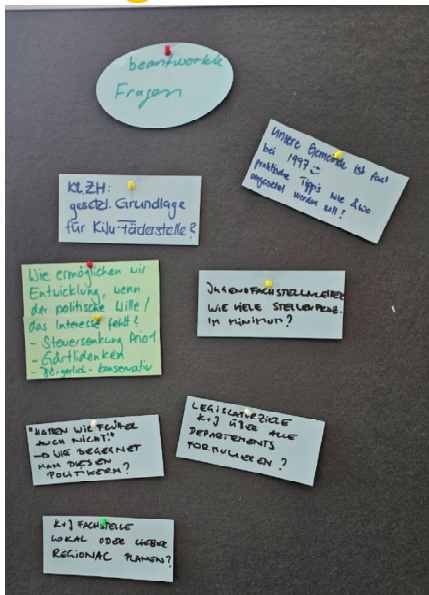 beantwortete
Fragen
Unsere Gemeinde ist fast
bei 1997
praktische Tipps wie & wo
angesetzt werden soll?
Kt. ZH:
gesetzl. Grundlage
für KiJu-Förderstelle?
Wie ermöglichen wir
Entwicklung, wenn
der politische Wille/
das Interesse fehlt?
- Steuersenkung Prio 1
- Gärtlidenken
- Bürgerlich-konservativ
JUGENDFACHSTELLENLEITER
WIE VIELE STELLENPROZ.
IM MINIMUM?
"HABEN WIR FRÜHER
AUCH NICHT!"
→ WIE BEGEGNET
MAN DIESEN
POLITIKERN?
LEGISLATURZIELE
K+J ÜBER ALLE
DEPARTEMENTS
FORMULIEREN?
K+J FACHSTELLE
LOKAL ODER LIEBER
REGIONAL PLANEN?